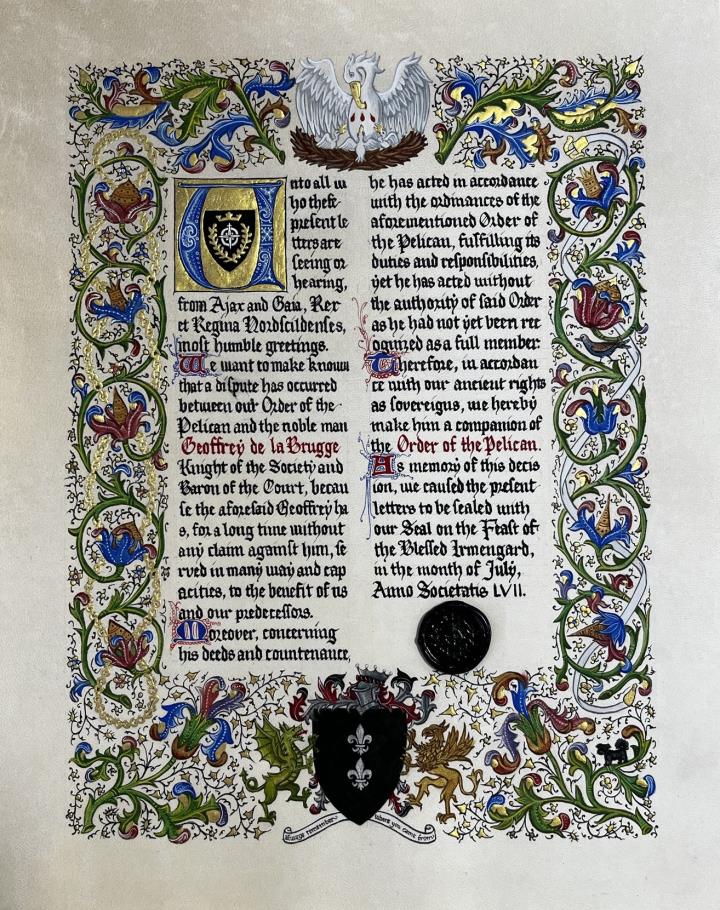 Unto all w
ho these
present le
tters are
seeing or
hearing,
from Ajax and Gaia, Rex
et Regina Nordscildenses,
most humble greetings.
We want to make known
that a dispute has occurred
between our Order of the
Pelican and the noble man
Geoffrey de la Brugge
Knight of the Society and
Baron of the Court, becau
se the aforesaid Geoffrey ha
s, for a long time without
any claim against him, se
rved in many way and cap
acities, to the benefit of us
and our predecessors.
Moreover, concerning
his deeds and countenance,
he has acted in accordance
with the ordinances of the
aforementioned Order of
the Pelican, fulfilling its
duties and responsibilities,
yet he has acted without
the authority of said Order
as he had not yet been rec
ognized as a full member
Therefore, in accordan
ce with our ancient rights
as sovereigns, we hereby
make him a companion of
the Order of the Pelican.
As memory of this decis
ion, we caused the present
letters to be sealed with
our Seal on the Feast of
the Blessed Irmengard,
in the month of July,
Anno Societatis LVII.
always remember where you came from